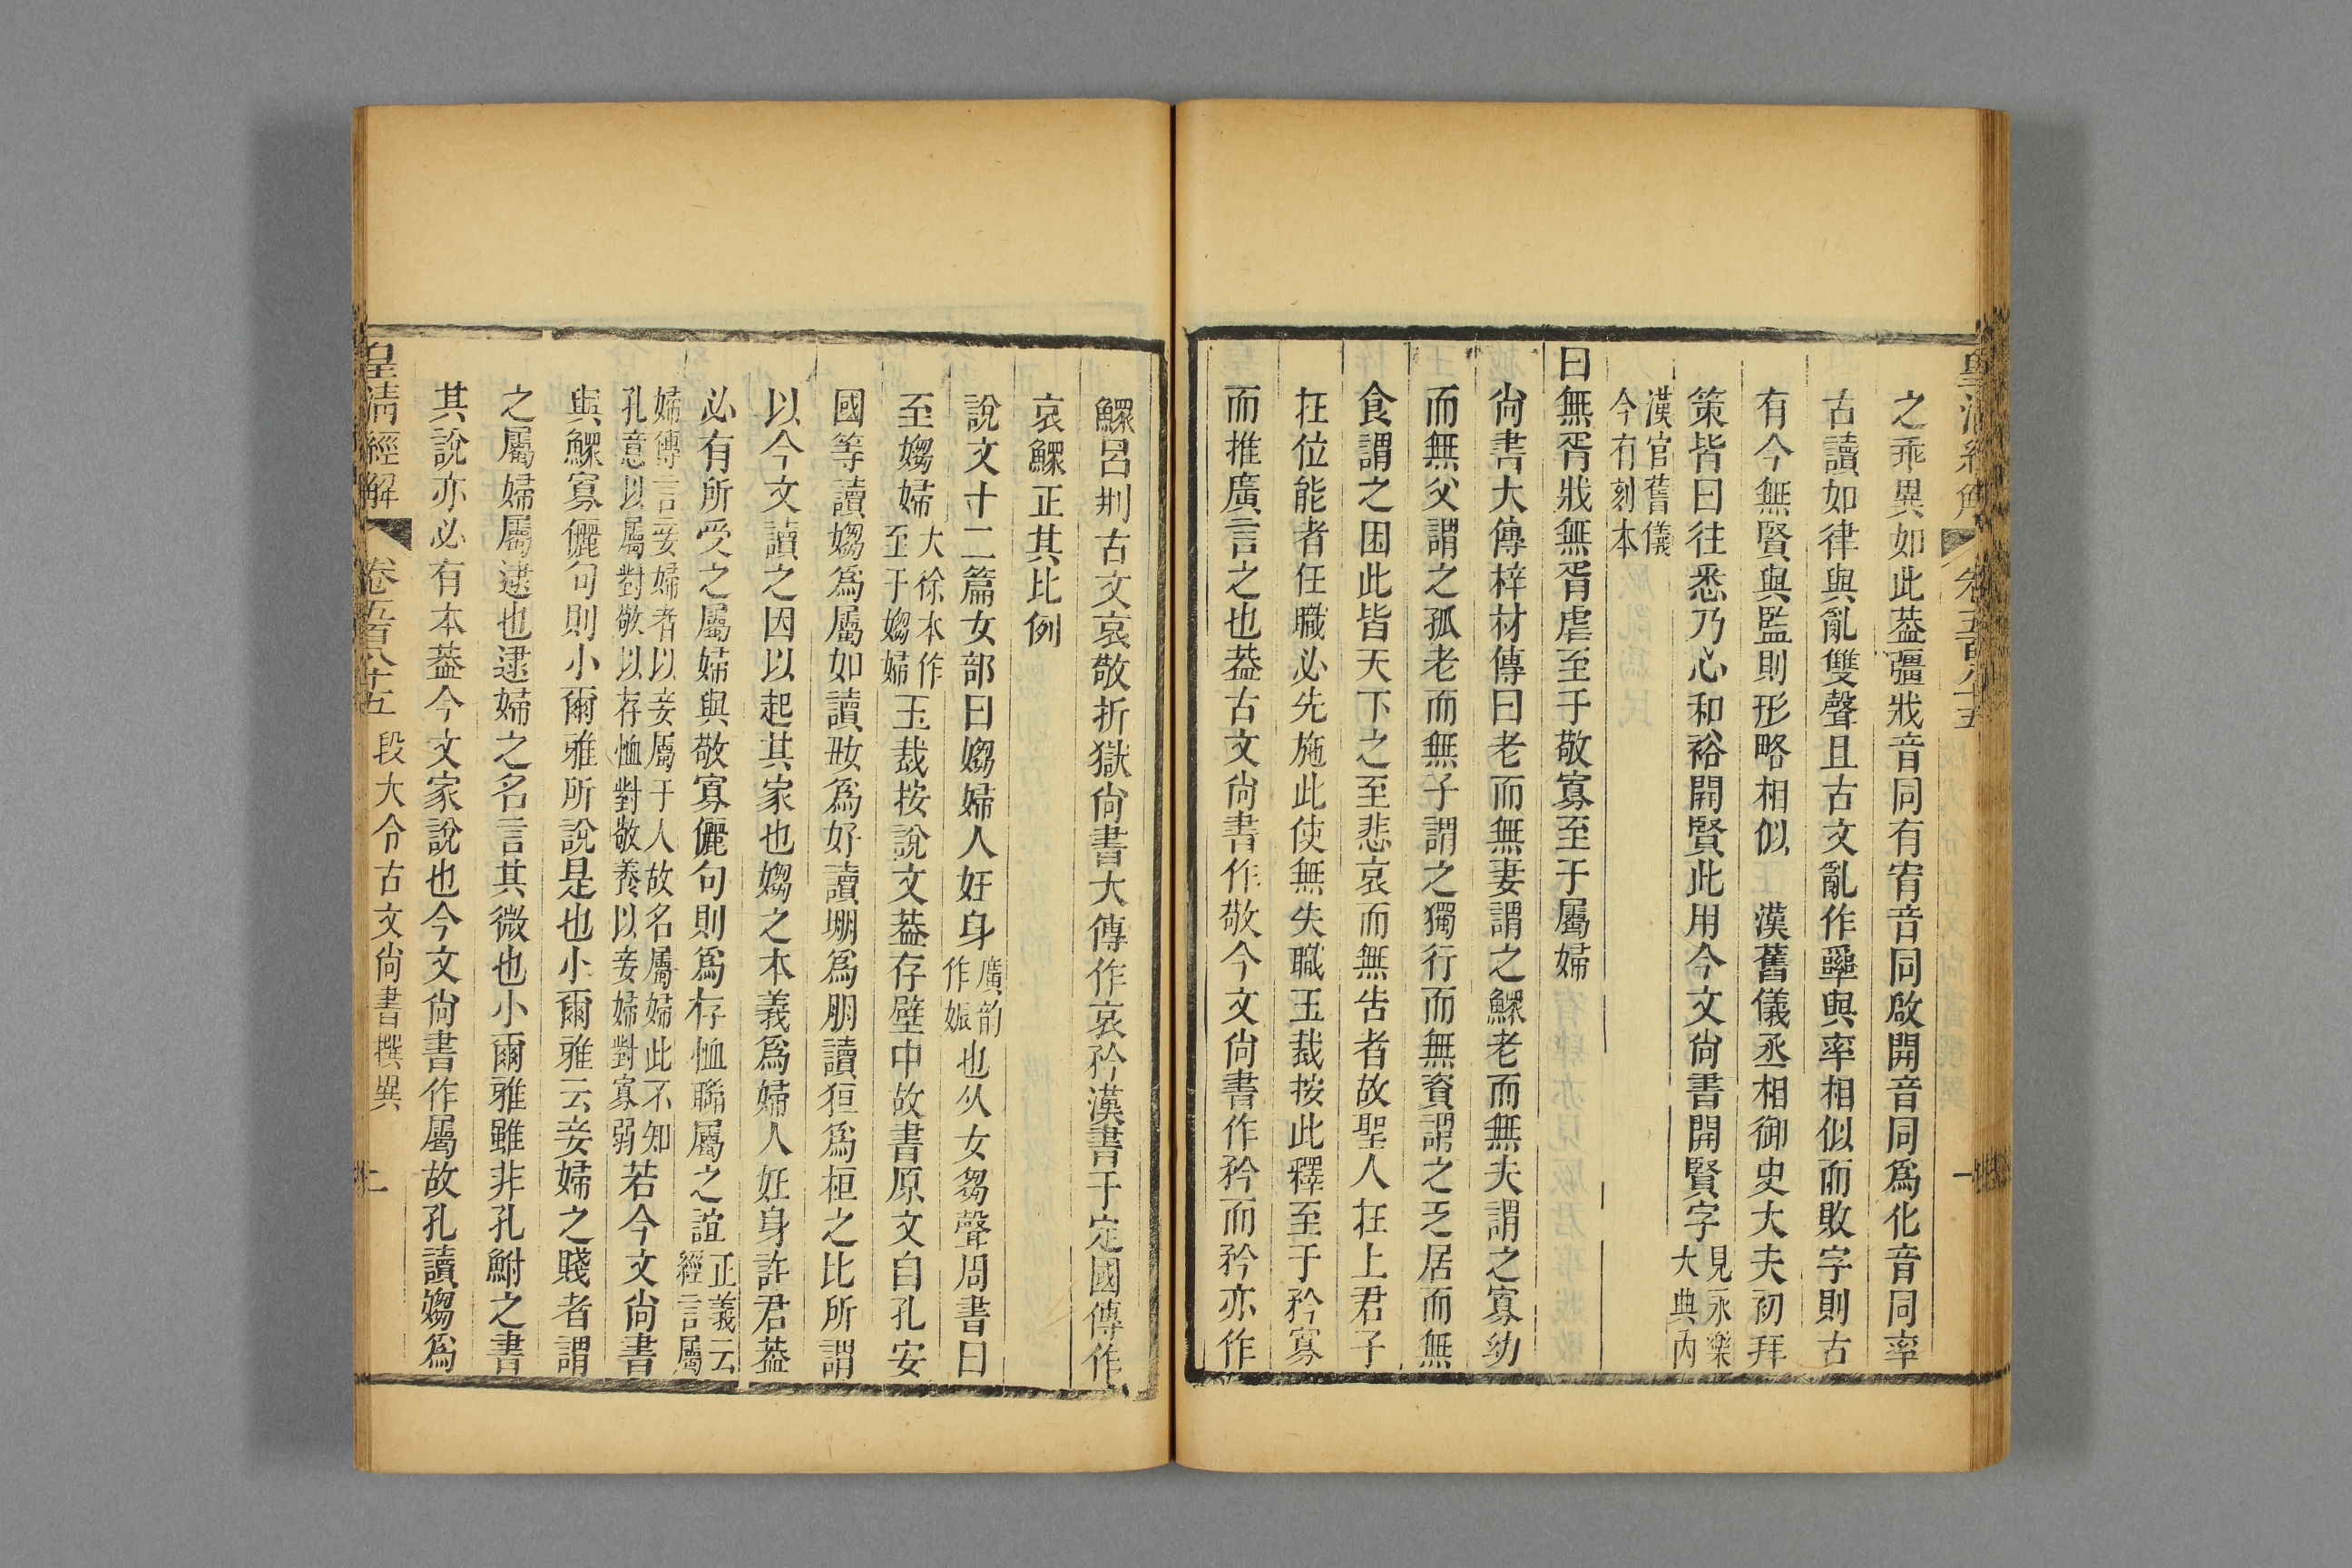 之乖異如此葢彊戕音同有宥音同啟開音同爲化音同率
古讀如律與亂雙聲且古文亂作𤔔與率相似而敗字則古
有今無賢與監則形略相似　漢舊儀丞相御史大夫初拜
策皆曰往悉乃心和裕開賢此用今文尚書開賢字見永樂大典內
漢官舊儀今有刻本
曰無胥戕無胥虐至于敬寡至于屬婦
尚書大傳梓材傳曰老而無妻謂之鰥老而無夫謂之寡幼
而無父謂之孤老而無子謂之獨行而無資謂之乏居而無
食謂之困此皆天下之至悲哀而無告者故聖人在上君子
在位能者任職必先施此使無失職玉裁按此釋至于矜寡
而推廣言之也葢古文尚書作敬今文尚書作矜而矜亦作
鰥呂刑古文哀敬折獄尚書大傳作哀矜漢書于定國傳作
哀鰥正其比例
說文十二篇女部曰媰婦人妊身廣韵作娠也从女芻聲周書曰
至媰婦大徐本作至于媰婦玉裁按說文葢存壁中故書原文自孔安
國等讀媰爲屬如讀𡚽爲好讀堋爲朋讀狟爲桓之比所謂
以今文讀之因以起其家也媰之本義爲婦人妊身許君葢
必有所受之屬婦與敬寡儷句則爲存恤聯屬之誼正義云經言屬
婦傳言妾婦者以妾屬于人故名屬婦此不知孔意以屬對敬以存恤對敬養以妾婦對寡弱若今文尚書
與鰥寡儷句則小爾雅所說是也小爾雅云妾婦之賤者謂
之屬婦屬逮也逮婦之名言其微也小爾雅雖非孔鮒之書
其說亦必有本葢今文家說也今文尚書作屬故孔讀媰爲
皇清經解　卷五百八十五　段大令古文尚書撰異